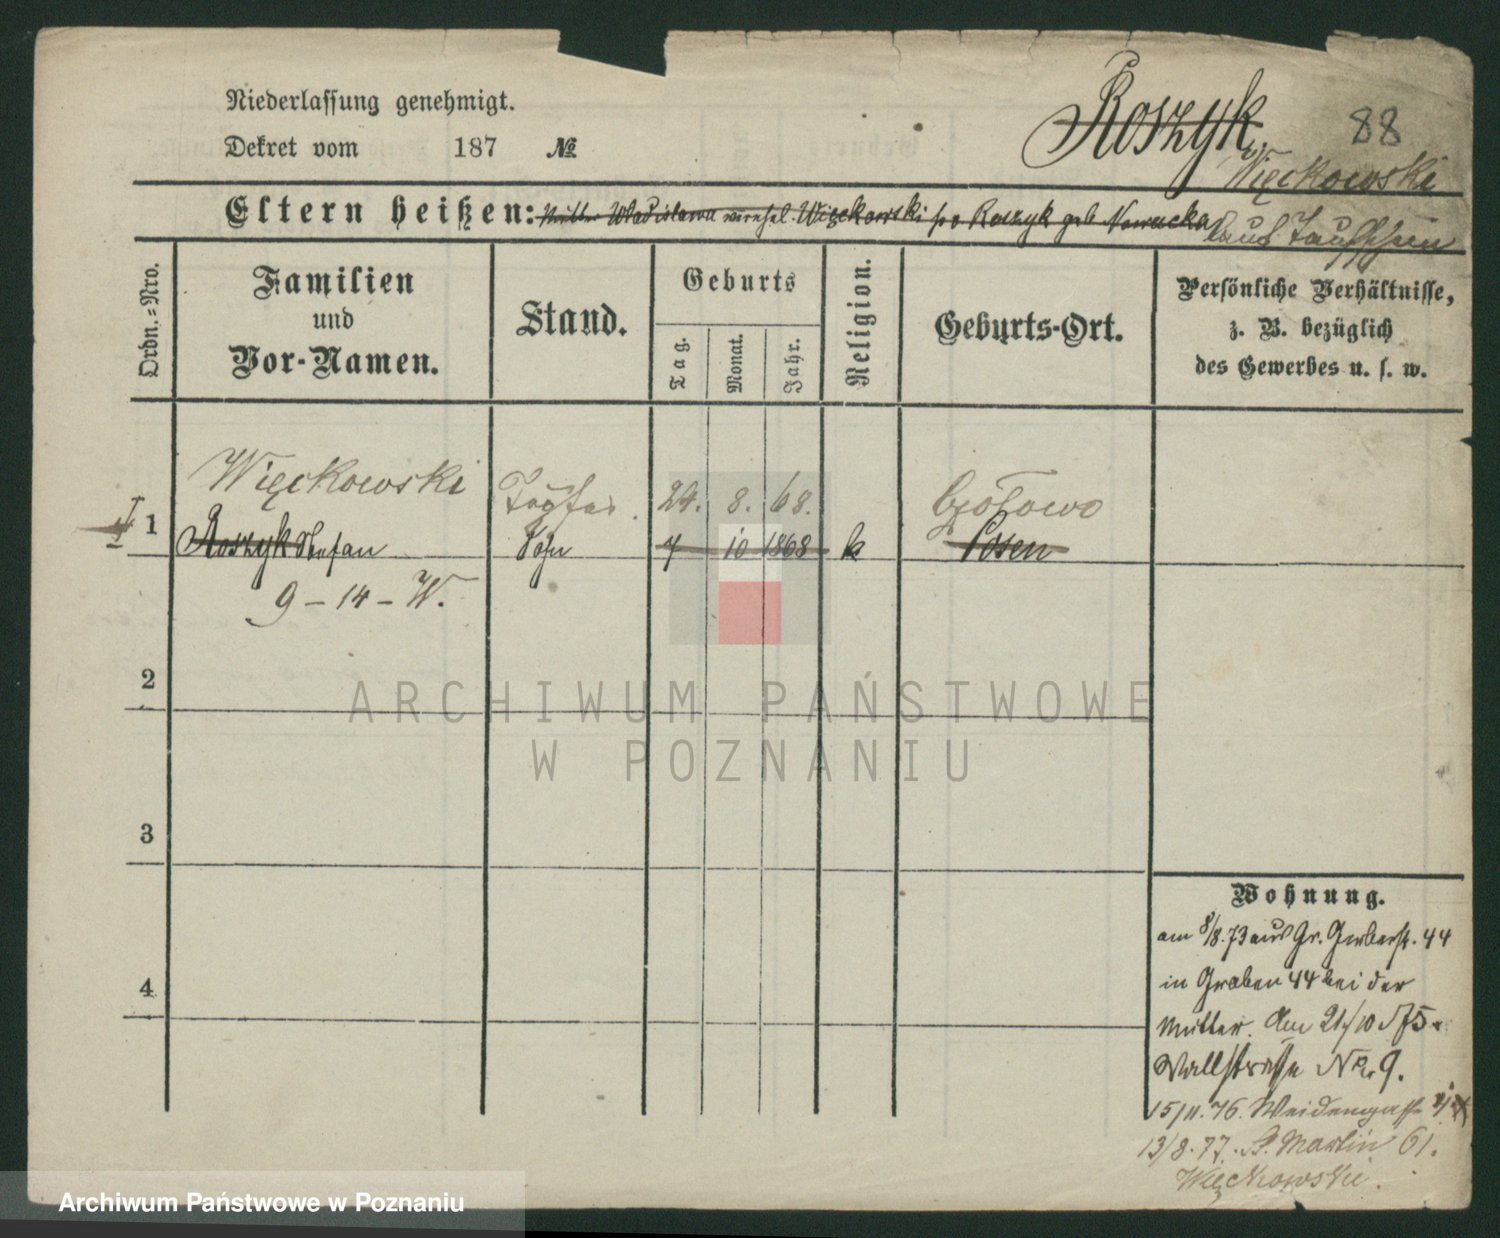 Niederlassung genehmigt.
Dekret vom 187 №
Roszyk
88
Więckowski
laut Taufschein
Eltern heißen: Mutter Wladislawa verehel. Więckowski pr. v. Roszyk geb. Nowacka
Ordn.-Nro.
Familien
und
Vor-Namen.
Stand.
Geburts
Tag.
Monat.
Jahr.
Religion.
Geburts-Ort.
Persönliche Verhältnisse,
z. B. bezüglich
des Gewerbes u. s. w.
Więckowski
Töpfer.
24. 8. 68.
1
Roszyk Stefan
Sohn
7 10 1868
k
Posen
9-14-W.
2
3
4
ARCHIWUM PAŃSTWOWE
W POZNANIU
Wohnung.
am 8/8.73 aus Gr. Gerberstr. 44
in Graben 44 bei der
Mutter. Am 21/10 75
Wallstrasse No. 9.
15/11.76. Weidengasse
13/8.77. St. Martin 61.
Więckowski.
Archiwum Państwowe w Poznaniu